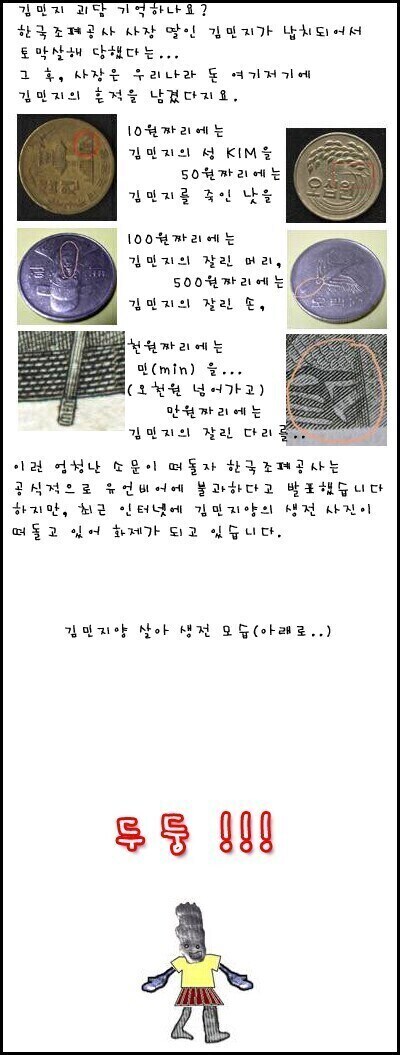 김민지 괴담 기억하나요?
한국조폐공사 사장 딸인 김민지가 납치되어서
토막살해 당했다는...
그 후, 사장은 우리나라 돈 여기저기에
김민지의 흔적을 남겼다지요.
10원짜리에는
김민지의 성 KIM을
50원짜리에는
김민지를 죽인 낫을
오십원
100원짜리에는
김민지의 잘린 머리,
500원짜리에는
김민지의 잘린 손,
천원짜리에는
민(min) 을...
(오천원 넘어가고)
만원짜리에는
김민지의 잘린 다리를..
이런 엄청난 소문이 떠돌자 한국조폐공사는
공식적으로 유언비어에 불과하다고 발표했습니다
하지만, 최근 인터넷에 김민지양의 생전 사진이
떠돌고 있어 화제가 되고 있습니다.
김민지양 살아 생전 모습(아래로..)
두둥 !!!